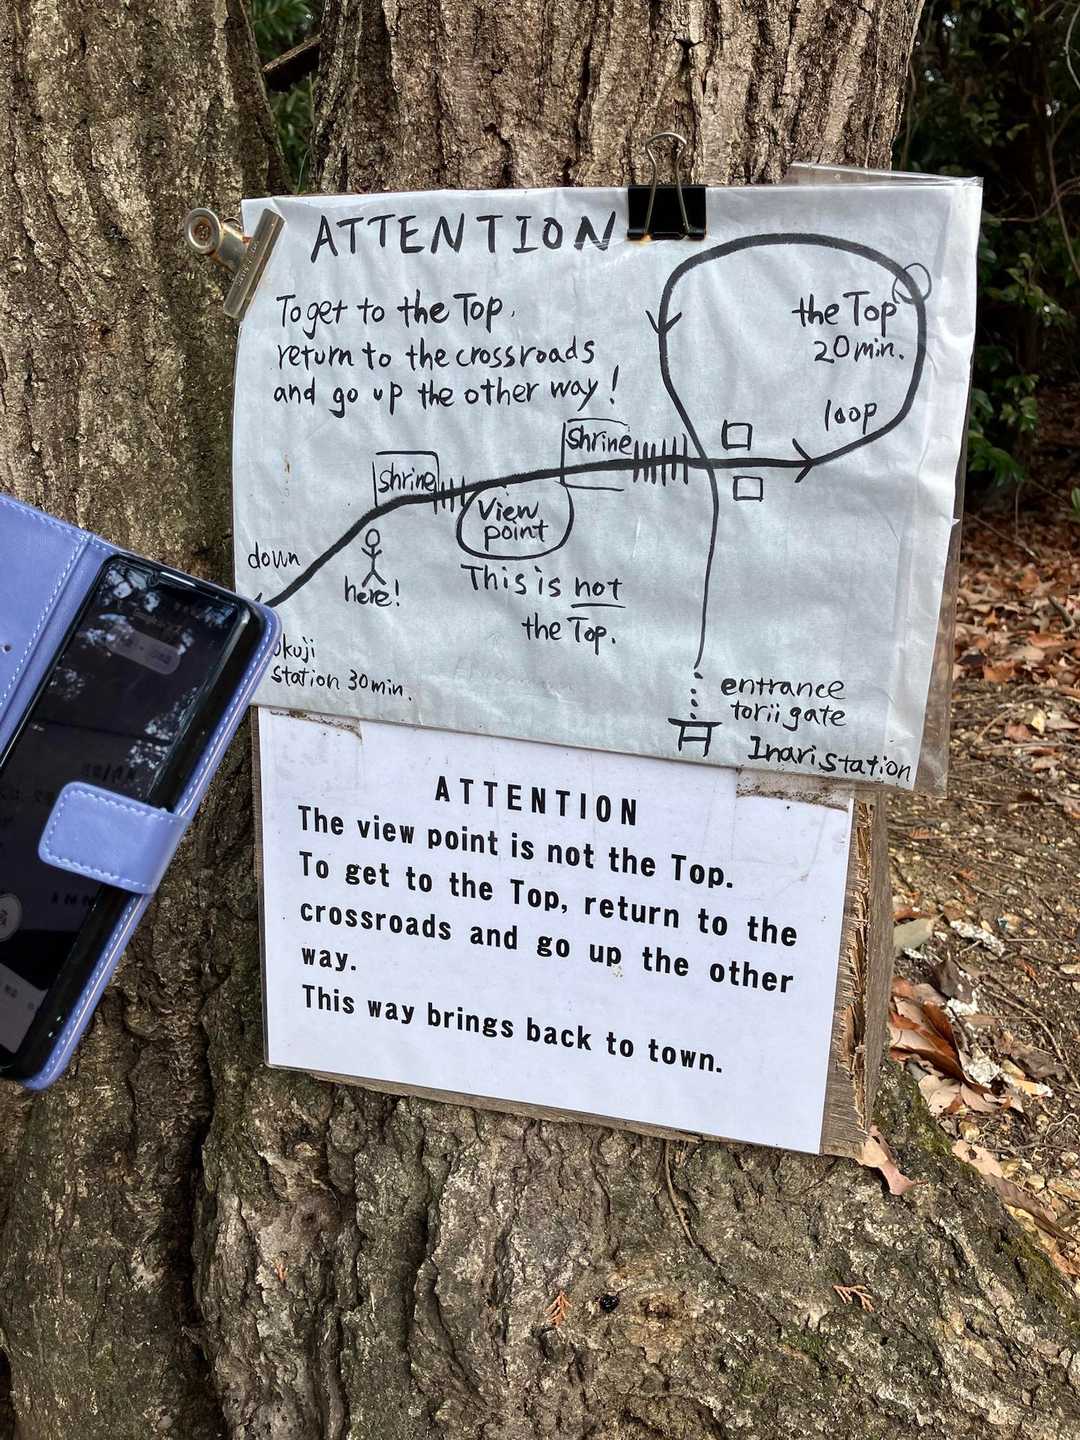 ATTENTION
To get to the Top,
return to the crossroads
and go up the other way!
the Top
20min.
loop
shrine
shrine
View
point
down
here!
This is not
the Top.
station 30min.
entrance
torii gate
Inari station
ATTENTION
The view point is not the Top.
To get to the Top, return to the
crossroads and go up the other
way.
This way brings back to town.